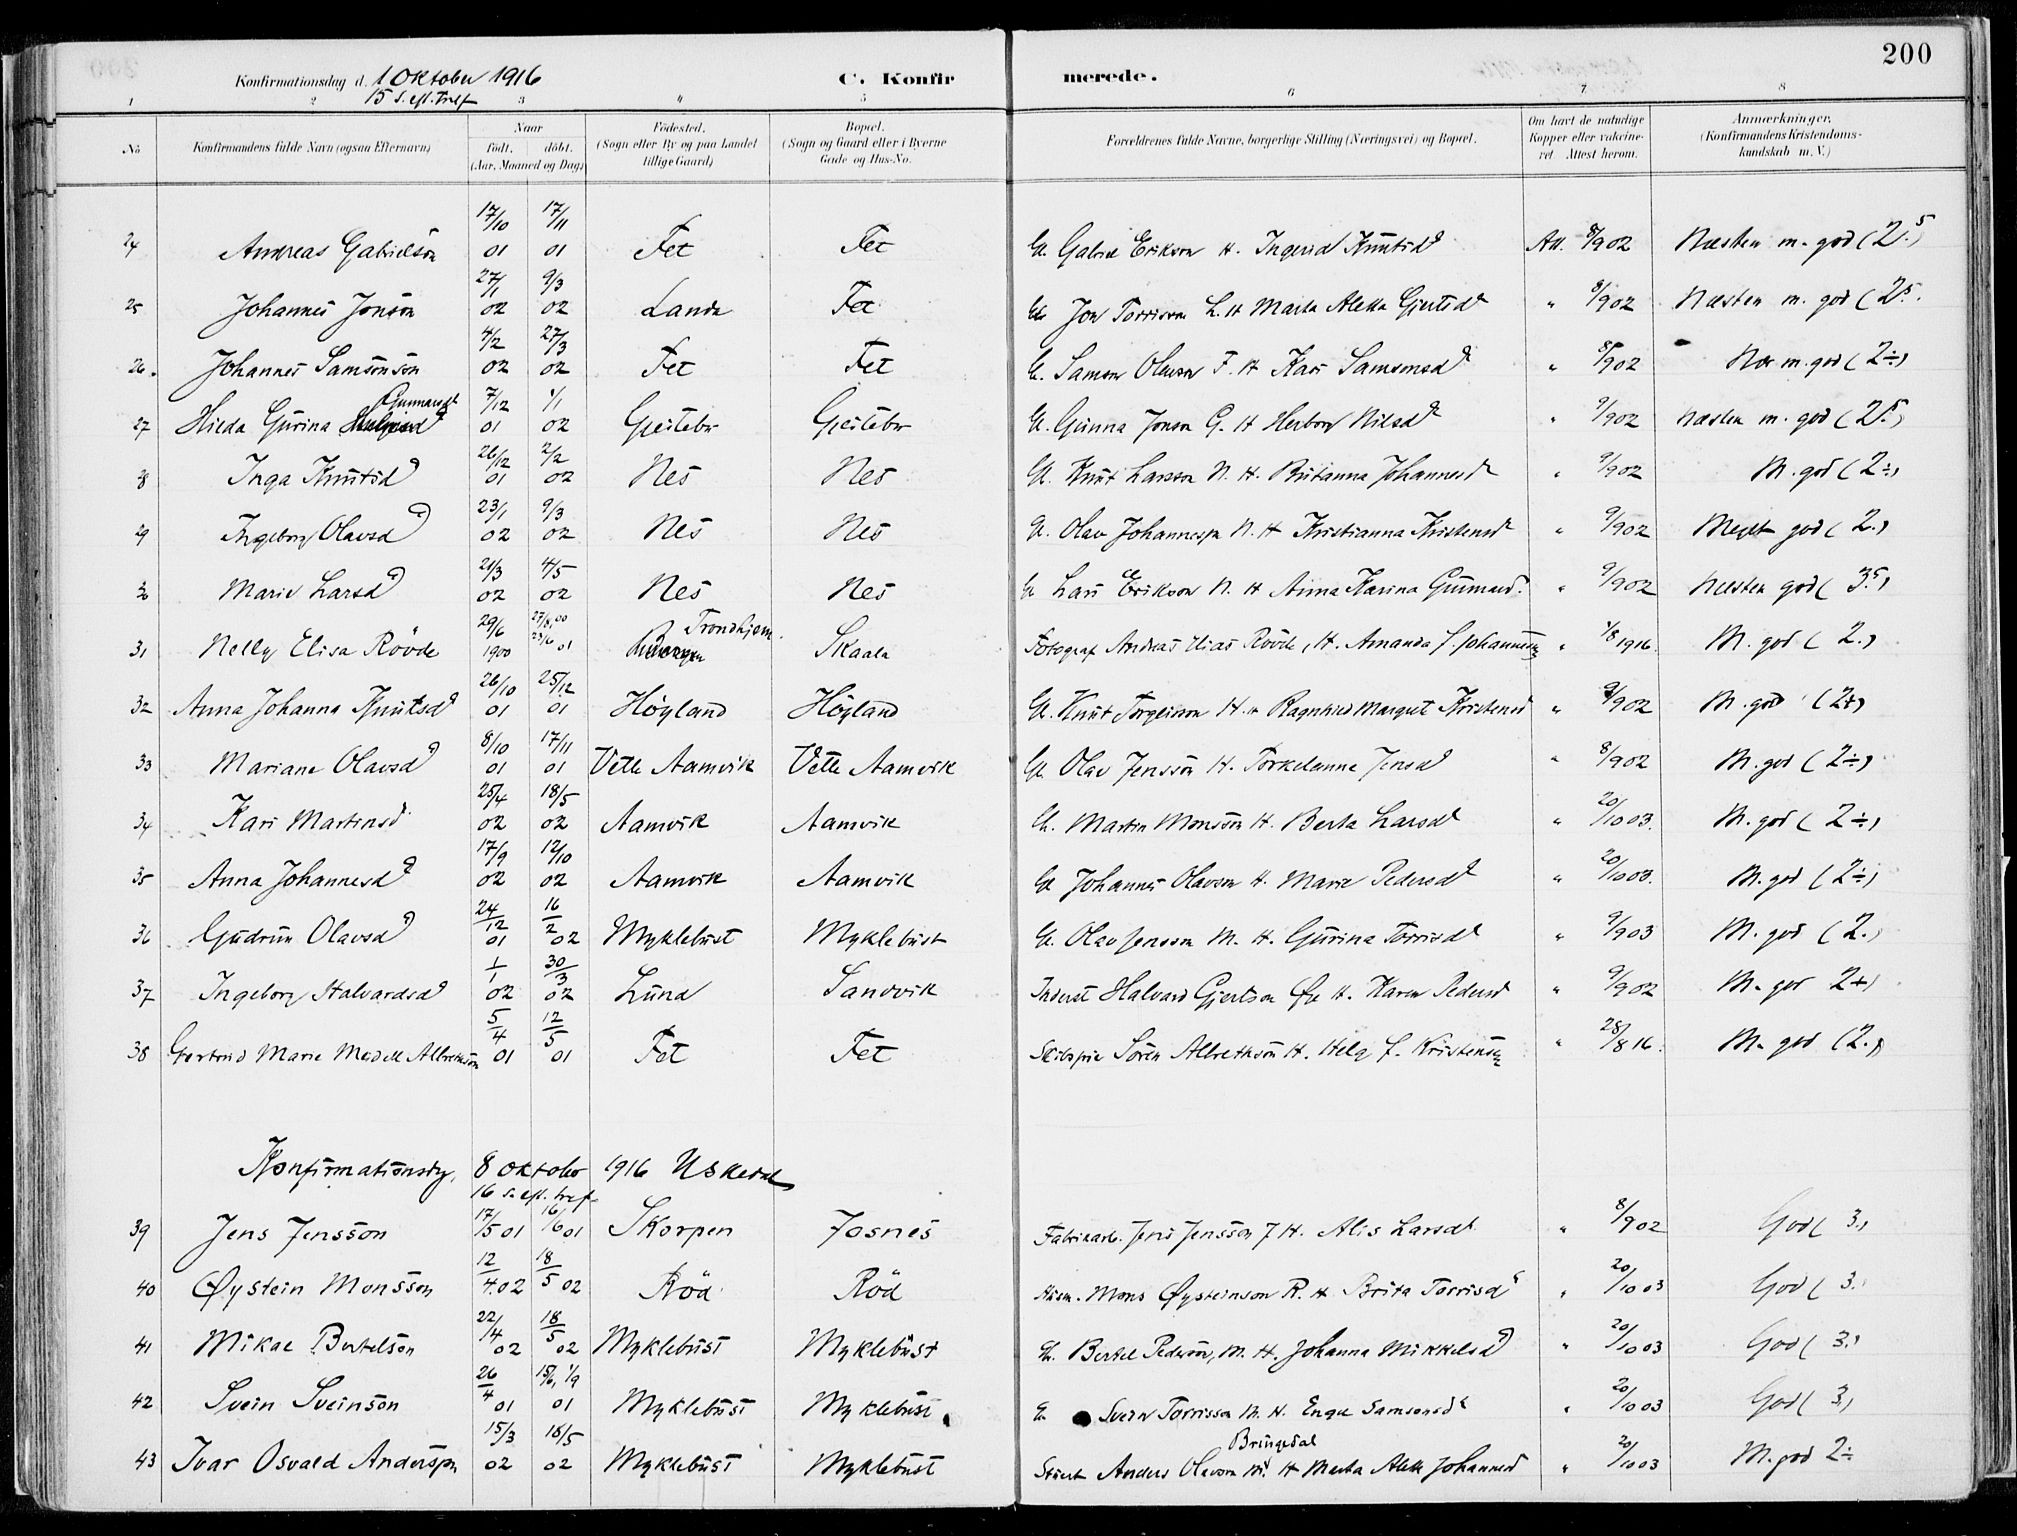 200
Konfirmationsdag d. 1 Oktober 1916 C. Konfirmerede.
15 S. eft. Tref
1 2 3 4 5 6 7 8
No Konfirmandens fulde Navn (ogsaa Efternavn) Naar födt. döbt. (Aar, Maaned og Dag) Födested. (Sogn eller By og paa Landet tillige Gaard) Bopæl. (Sogn og Gaard eller i Byerne Gade og Hus-No. Forældrenes fulde Navne, borgerlige Stilling (Næringsvei) og Bopæl. Om havt de naturlige Kopper eller vakcineret. Attest herom. Anmærkninger. (Konfirmandens Kristendomskundskab m. V.)
24 Andreas Gabrielson 17/10 01 17/11 01 Fet Fet G. Gabriel Erikson H. Ingerid Knutsd Att. 8/9 02 Næsten m. god (2.5)
25 Johannes Jonson 27/1 02 9/3 02 Landa Fet G. Jon Torrisson L. H Marta Aletta Gjertsd " 9/9 02 Næsten m. god (2.5.
26. Johannes Samsonson 4/2 02 27/3 02 Fet Fet G. Samson Olavson F. H Kari Samsonsd " 8/9 02 Nær m. god (2÷)
27 Hilda Gurina Gunnarsd 7/12 01 1/1 02 Gjeitebr Gjeitebr G. Gunna Jonson G. H Herborg Nilsd " 9/9 02 Næsten m. god (2.5)
8 Inga Knutsd 26/12 01 2/2 02 Nes Nes G. Knut Larsson N. H. Britanna Johannesd " 9/9 02 M. god (2÷)
29 Ingeborg Olavsd 23/1 02 9/3 02 Nes Nes G. Olav Johannesson N. H Kristianna Kristensd " 9/9 02 Meget god (2.)
30 Marie Larsd 21/3 02 4/5 02 Nes Nes G Lars Erikson N. H Anna Karina Gunnarsd. " 9/9 02 Næsten god (3.5)
31 Nelly Elisa Rövde 29/6 1900 27/8,00 23/6 01 Trondhjem. Skaala Fotograf Andreas Elias Rövde, H. Amanda f. Johannesen " 1/8 1916. M. god (2.)
32 Anna Johanna Knutsd 26/10 01 25/12 01 Höyland Höyland G. Knut Torgeirson H. H Ragnhild Margret Kristensd " 9/9 02 M. god (2+)
33 Mariane Olavsd 8/10 01 17/11 01 Vetle Aamvik Vetle Aamvik G. Olav Jensson H. Torkelanna Jensd " 8/9 02 M. god (2÷)
34 Kari Martinsd 25/4 02 18/5 02 Aamvik Aamvik G. Martin Monsson H. Berta Larsd " 20/10 03. M. god (2÷)
35 Anna Johannesd 17/9 02 12/10 02 Aamvik Aamvik G. Johannes Olavson H. Marie Pedersd " 20/10 03. M. god (2÷)
36 Gudrun Olavsd 24/12 01 16/2 02 Myklebust Myklebust G. Olav Jensson M. H. Gurina Torrisd " 9/9 03 M. god (2.)
37 Ingeborg Halvardsd 1/1 02 30/3 02 Lund Sandvik Inderst Halvard Gjertson H. Karen Pedersd " 9/9 02 M. god 2+)
38 Gertrud Marie Meidell Albrethson 5/4 01 12/5 01 Fet Fet Skibsfrie Sören Albrethson H. Helg f. Kristensen " 28/8 16. M. god (2.)
Konfirmationsdg, 8 Oktober 1916 Uskedal
16 S. eft. tref
39 Jens Jensson 17/5 01 16/6 01 Skorpen Josnes Fabrikarb. Jens Jensson J H. Alis Larsd " 8/9 02 God (3.)
40 Øystein Monsson 12/4.02 18/5 02 Röd Röd Husm. Mons Øysteinson R. H Brita Torrisd " 20/10 03 God (3.
41 Mikal Bertelson 22/14 02 18/5 02 Myklebust Myklebust G. Bertel Pederson, M. H. Johanna Mikkelsd " 20/10 03 God (3.)
42 Svein Sveinson 26/4 01 15/6, 1/9 01 Myklebust Myklebust G. Svein Torrisson M. H. Engel Samsonsd " 20/10 03 God (3.)
Bringedal
43 Ivar Osvald Anderson 15/3 02 18/5 02 Myklebust Myklebust Anders Olavson M. H Marta Aletta Johannesd " 20/10 03 M. god 2÷